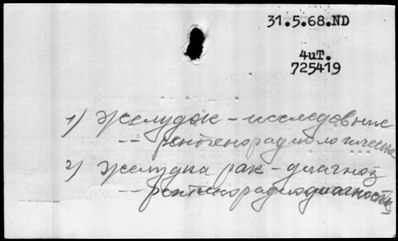 31.5.68.ND
4uT.
725419
1) Желудок - исследование
-- рентгенорадиологическое
2) Желудка рак - диагноз
-- рентгенорадиодиагностика